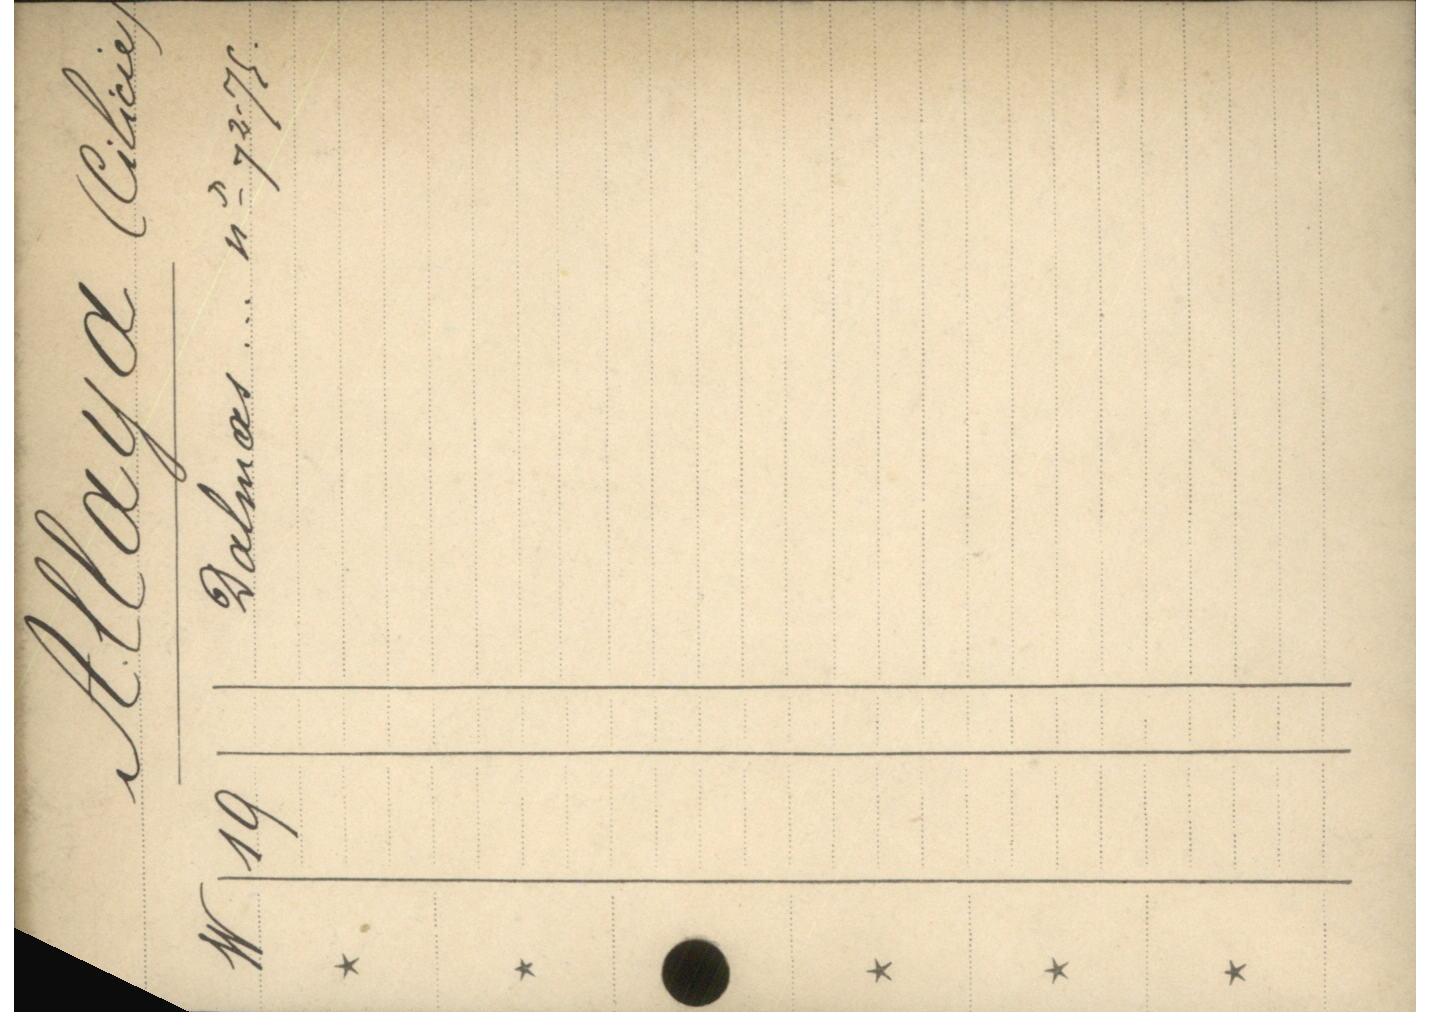 Allaya (Cilicie)
W 19 Dalmas ... nos 72-75.